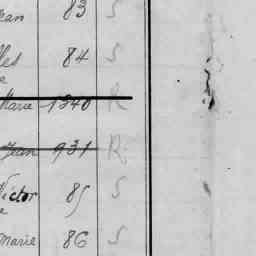 ean 83 S
les 84 S
e
Marie 1340 R
Jean 931 R.
Victor 85 S
e
Marie 86 S